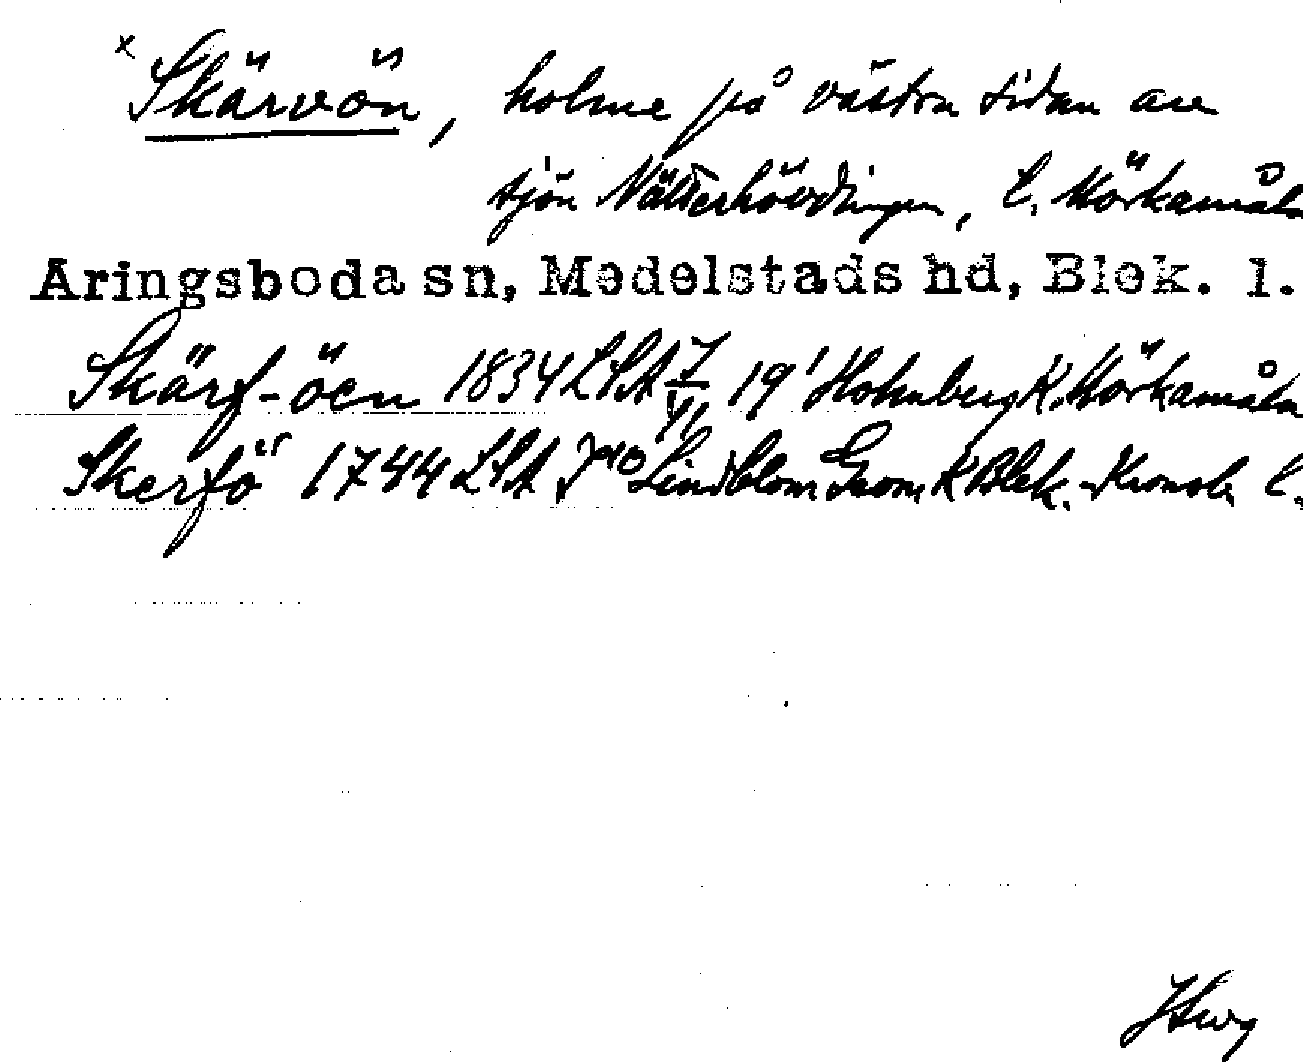 x Skärvön, holme på västra sidan av
sjön Nätterhövdingen, l. Mörkamåla
Aringsboda sn, Medelstads hd, Blek. l.
Skärf-öen 1834 LSA 19 Holmberg K. Mörkamåla
Skerfö 1744 LSA Lindblom Geom K Blek.-Kronob. l.